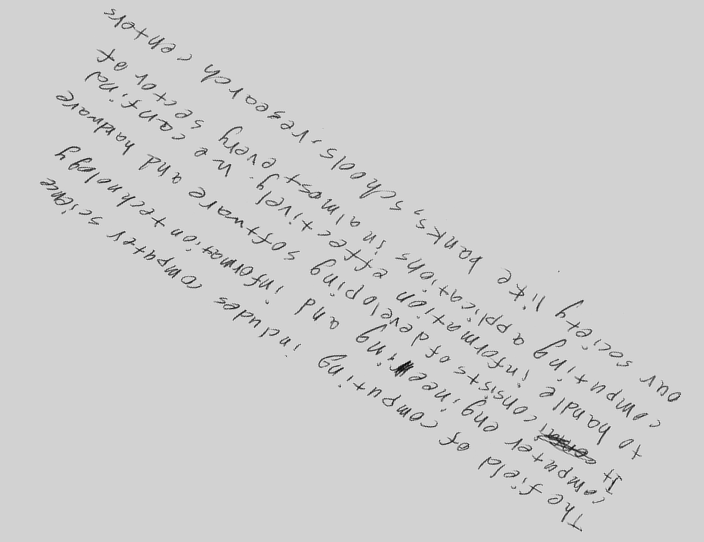 The field of computing includes computer science
computer engineering and information technology
It consists of developing software and hardware
to handle information effectively. we can find
computing applications in almost every sector of
our society like banks, schools, research centers